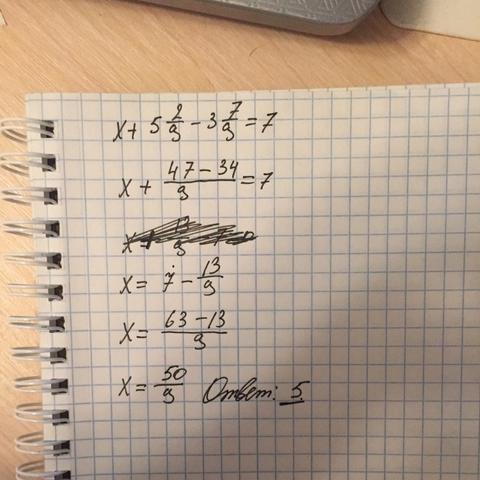 x + 5 2/9 - 3 7/9 = 7
x + (47 - 34)/9 = 7
x = 7 - 13/9
x = (63 - 13)/9
x = 50/9 Ответ: 5